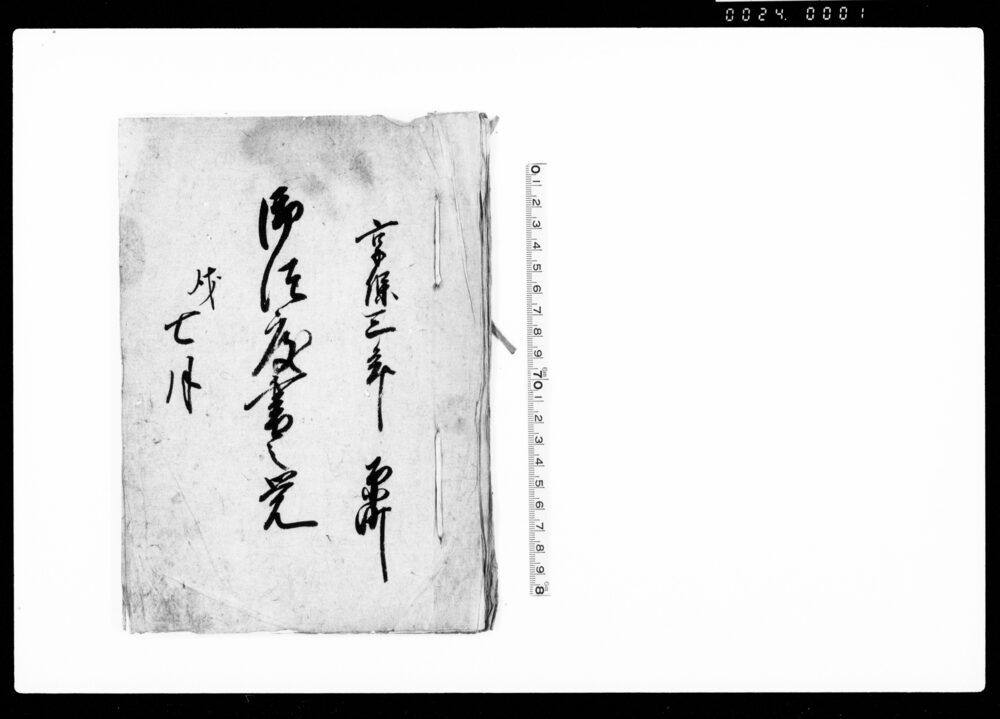 0024. 0001
享保三年
御法度書之覚
戌
七月
0 1 2 3 4 5 6 7 8 9 70 1 2 3 4 5 6 7 8 9 8